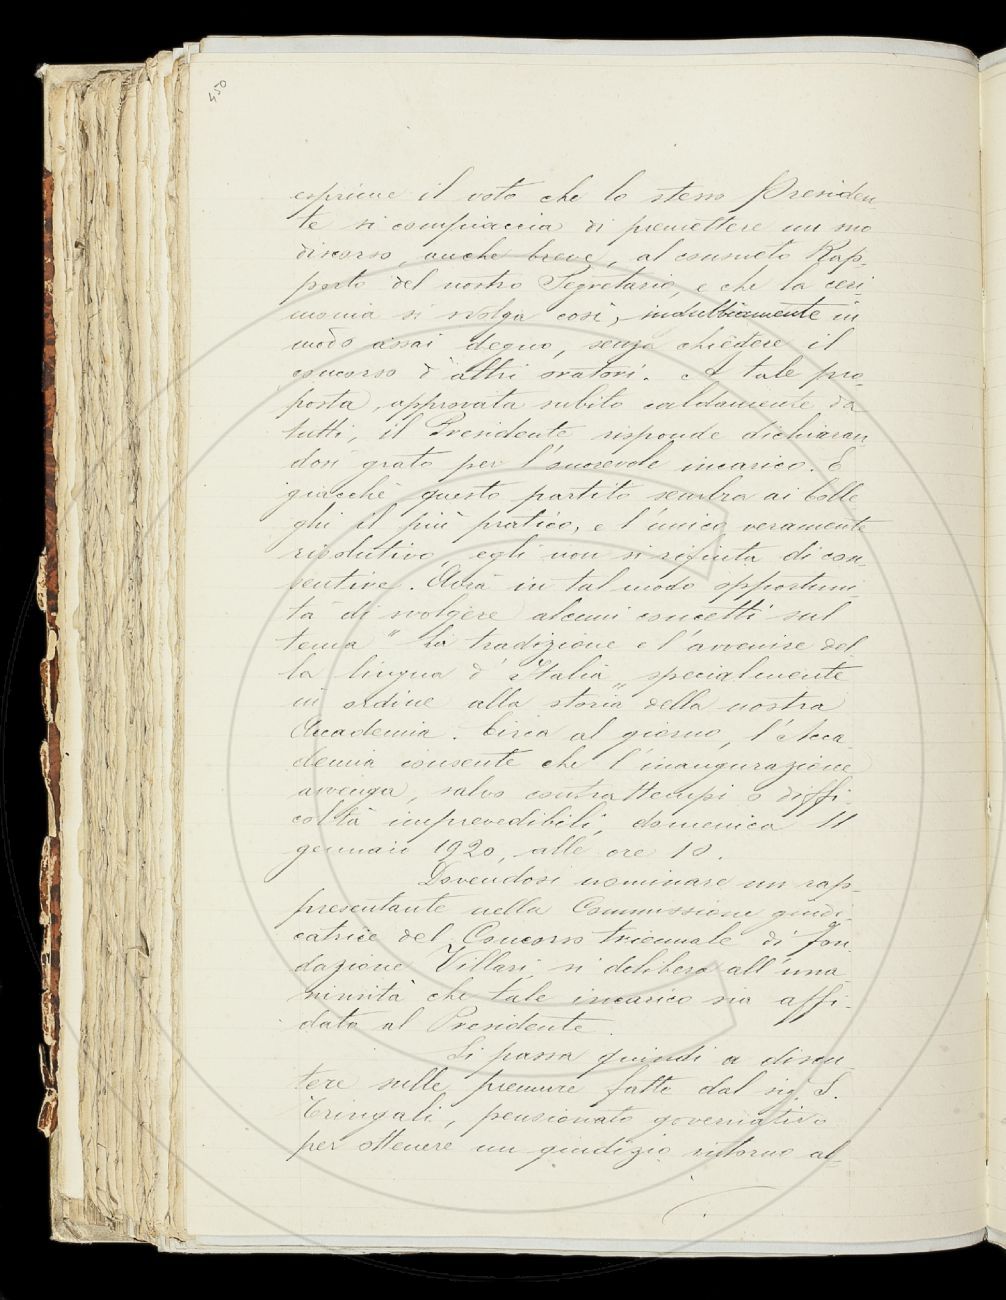 450
esprime il voto che lo stesso Presiden-
te si compiaccia di premettere un suo
discorso, anche breve, al consueto Rap-
porto del nostro Segretario, e che la ceri
monia si svolga così, indubbiamente in
modo assai degno, senza chiedere il
concorso d'altri oratori. A tale pro-
posta, approvata subito caldamente da
tutti, il Presidente risponde dichiaran
dosi grato per l'onorevole incarico. E
giacchè questo partito sembra ai Colle
ghi il più pratico, e l'unico veramente
risolutivo, egli non si rifiuta di con-
sentire. Avrà in tal modo opportuni-
tà di svolgere alcuni concetti sul
tema "La tradizione e l'avvenire del
la lingua d'Italia" specialmente
in ordine alla storia della nostra
Accademia. Circa al giorno, l'Acca
demia consente che l'inaugurazione
avvenga, salvo contrattempi o diffi-
coltà imprevedibili, domenica 11
gennaio 1920, alle ore 10.
Dovendosi nominare un rap-
presentante nella Commissione giudi-
catrice del Concorso triennale di fon
dazione Villari, si delibera all'una
nimità che tale incarico sia affi-
dato al Presidente.
Si passa quindi a discu
tere sulle premure fatte dal sig. S.
Tringali, pensionato governativo
per ottenere un giudizio intorno al-